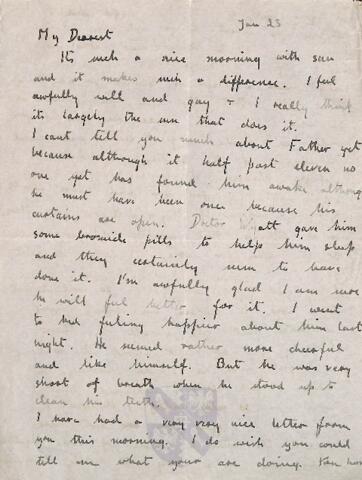 Jan 23
My Dearest
Its such a nice morning with sun
and it makes such a difference. I feel
awfully well and gay & I really think
its largely the sun that does it.
I cant tell you much about Father yet
because although it half past eleven no
one yet has found him awake although
he must have been once because his
curtains are open. Doctor gave him
some bromide pills to help him sleep
and they certainly seem to have
done it. I'm awfully glad I am sure
he will feel better for it. I went
to bed feeling happier about him last
night. He seemed rather more cheerful
and like himself. But he was very
short of breath when he stood up to
clean his teeth.
I have had a very very nice letter from
you this morning. I do wish you could
tell me what your are doing. You